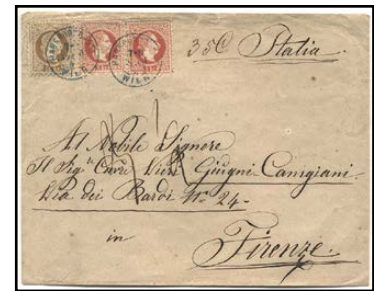 35C Italia
Al Nobile Signore
Il Sigr Cavre Vieri Giugni Canigiani
Via dei Bardi No 24
in
Firenze
WIEN